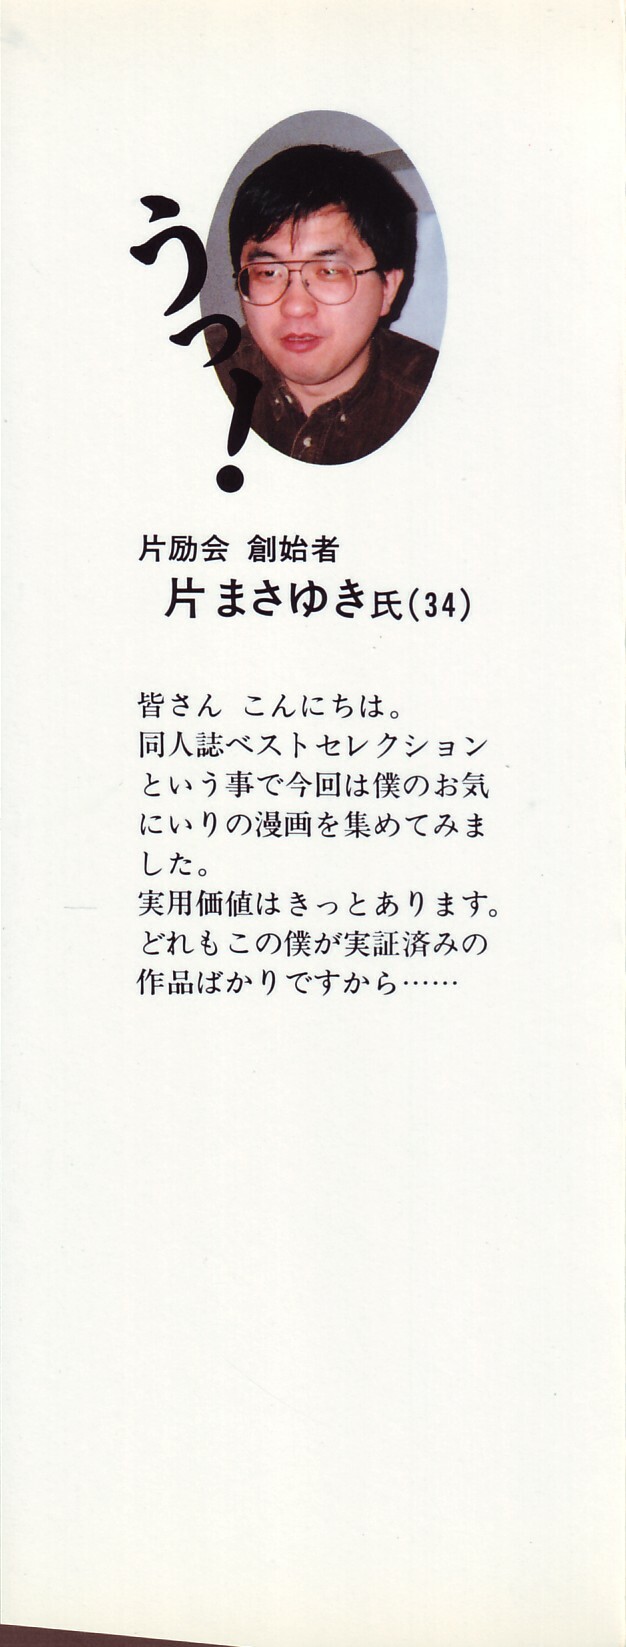 うっ!
片励会 創始者
片まさゆき氏(34)
皆さん こんにちは。
同人誌ベストセレクション
という事で今回は僕のお気
にいりの漫画を集めてみま
した。
実用価値はきっとあります。
どれもこの僕が実証済みの
作品ばかりですから……